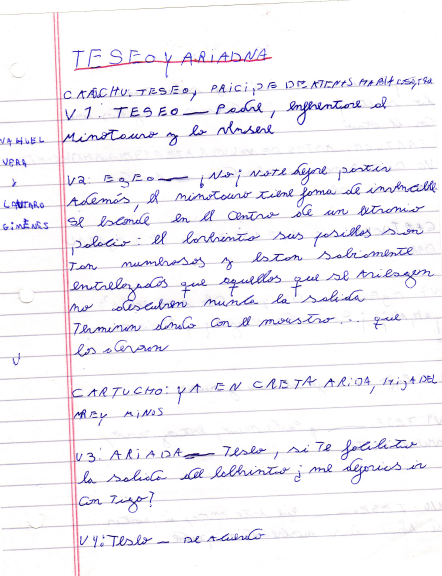 TESEO Y ARIADNA
CARTCHU. TESEO, PRICI, DE DE ATENAS HABIA
V1: TESEO — Padre, enfrentare al
Minotauro y lo vensere
NAHUEL
VERA
y
LAUTARO
GIMÉNES
V2: EGEO — ¡No¡ No te dejare partir
Además, el minotauro tiene fama de invencible
Se esconde en el centro de un
palacio: el laberinto sus pasillos son
tan numerosos y estan sabiamente
entrelazados que aquellos que se arriesgan
no descubren nunca la salida
Terminan dando con el moustro... que
los
CARTUCHO: YA EN CRETA ARIDA, HIJA DEL
RREY MINOS
V3: ARIADA — Teseo, si te facilito
la salida del labhrinto ¿ me dejarias ir
con tigo?
V4: Teseo — DE Acuerdo